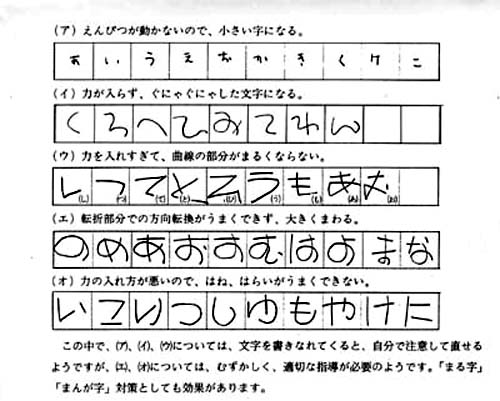 (ア) えんぴつが動かないので、小さい字になる。
あ い う え お か き く け こ
(イ) 力が入らず、ぐにゃぐにゃした文字になる。
く ろ へ ひ み て わ ん
(ウ) 力を入れすぎて、曲線の部分がまるくならない。
し つ て と ひ う も あ む
(し) (つ) (て) (と) (ひ) (う) (も) (あ)
(エ) 転折部分での方向転換がうまくできず、大きくまわる。
の め あ お す む は よ ま な
(オ) 力の入れ方が悪いので、はね、はらいがうまくできない。
い こ り つ し ゆ も や け に
この中で、(ア)、(イ)、(ウ)については、文字を書きなれてくると、自分で注意して直せる
ようですが、(エ)、(オ)については、むずかしく、適切な指導が必要のようです。「まる字」
「まんが字」対策としても効果があります。